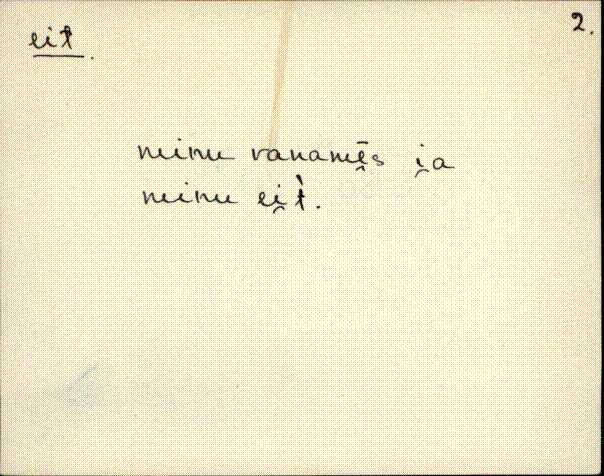 2.
eit̀.
minu vanamē̮s i̯a
minu ei̯t̀.